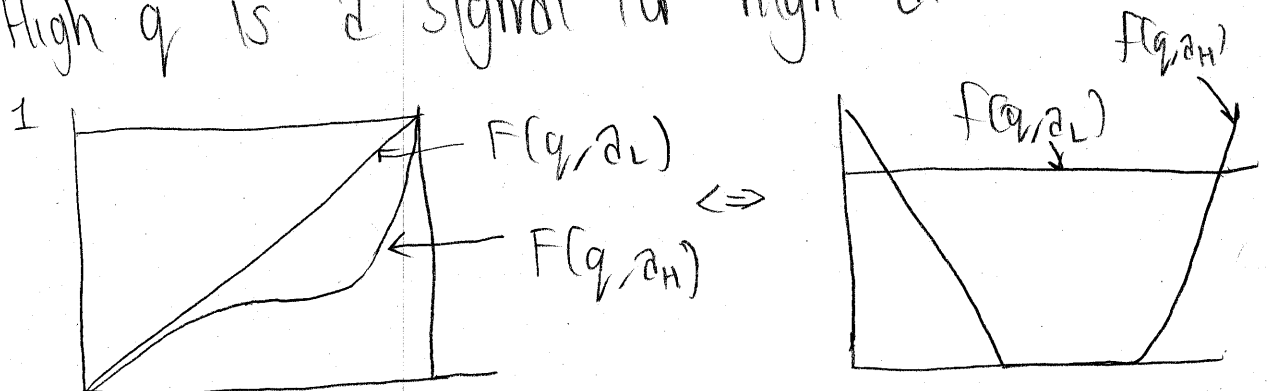 High q is a signal for high
1
F(q, a_L)
<=>
F(q, a_H)
f(q, a_L)
f(q, a_H)